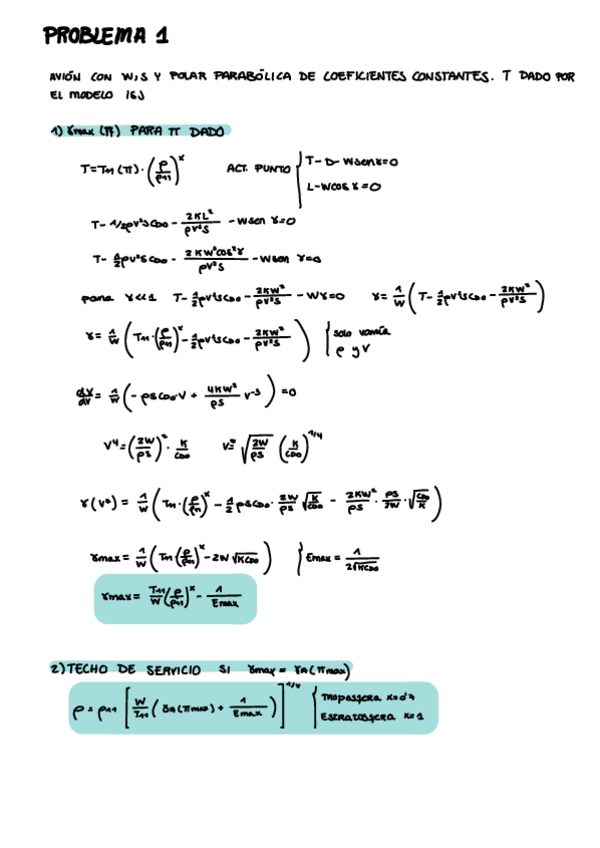 PROBLEMA 1
AVIÓN CON W, S Y POLAR PARABÓLICA DE COEFICIENTES CONSTANTES. T DADO POR
EL MODELO
1) γmax (π) PARA π DADO
T = T11 (π) · (ρ/ρ11)^x ACT. PUNTO { T - D - W sen γ = 0
L - W cos γ = 0
T - 1/2 ρV²S CD0 - 2KL²/ρV²S - W sen γ = 0
T - 1/2 ρV²S CD0 - 2KW²cos²γ/ρV²S - W sen γ = 0
para γ<<1 T - 1/2 ρV²S CD0 - 2KW²/ρV²S - Wγ = 0 γ = 1/W (T - 1/2 ρV²S CD0 - 2KW²/ρV²S)
γ = 1/W (T11 · (ρ/ρ11)^x - 1/2 ρV²S CD0 - 2KW²/ρV²S) { solo varía
ρ y V
dγ/dV = 1/W (-ρS CD0 V + 4KW²/ρS V^-3) = 0
V^4 = (2W/ρS)² · K/CD0 V = √(2W/ρS) (K/CD0)^1/4
γ(V*) = 1/W (T11 · (ρ/ρ11)^x - 1/2 ρS CD0 · 2W/ρS √(K/CD0) - 2KW²/ρS · ρS/2W · √(CD0/K))
γmax = 1/W (T11 (ρ/ρ11)^x - 2W √(K CD0)) { Emax = 1/2√(K CD0)
γmax = T11/W (ρ/ρ11)^x - 1/Emax
2) TECHO DE SERVICIO SI γmax = γA (πmax)
ρ = ρ11 [W/T11 (γA (πmax) + 1/Emax)]^1/x { Troposfera x=0'7
Estratosfera x=1